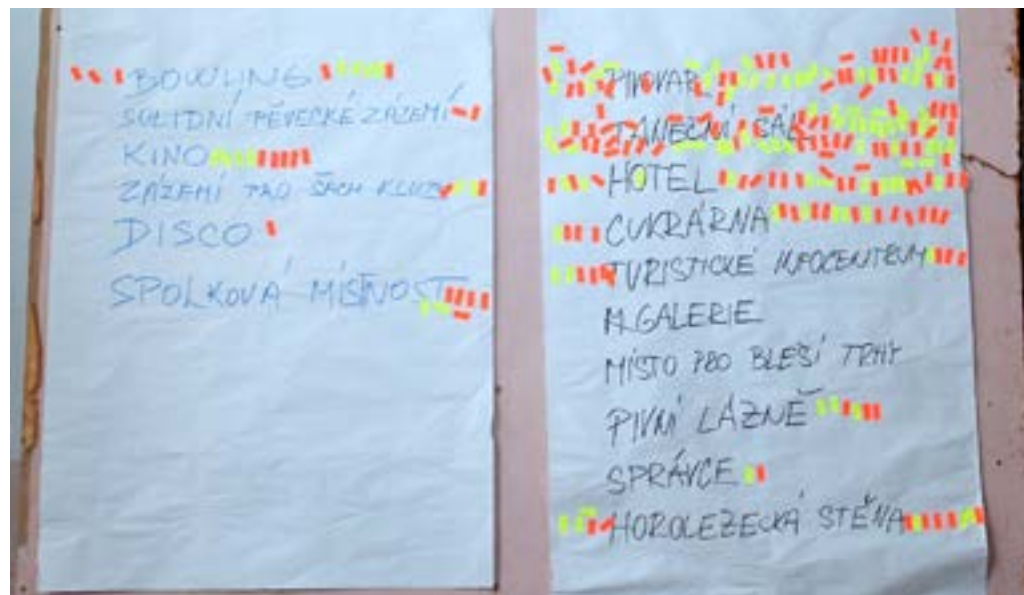 BOWLING
SOLIDNÍ PĚVECKÉ ZÁZEMÍ
KINO
ZÁZEMÍ PRO ŠACH KLUB
DISCO
SPOLKOVÁ MÍSTNOST
PIVOVAR
TANEČNÍ SÁL
HOTEL
CUKRÁRNA
TURISTICKÉ INFOCENTRUM
M. GALERIE
MÍSTO PRO BLEŠÍ TRHY
PIVNÍ LÁZNĚ
SPRÁVCE
HOROLEZECKÁ STĚNA